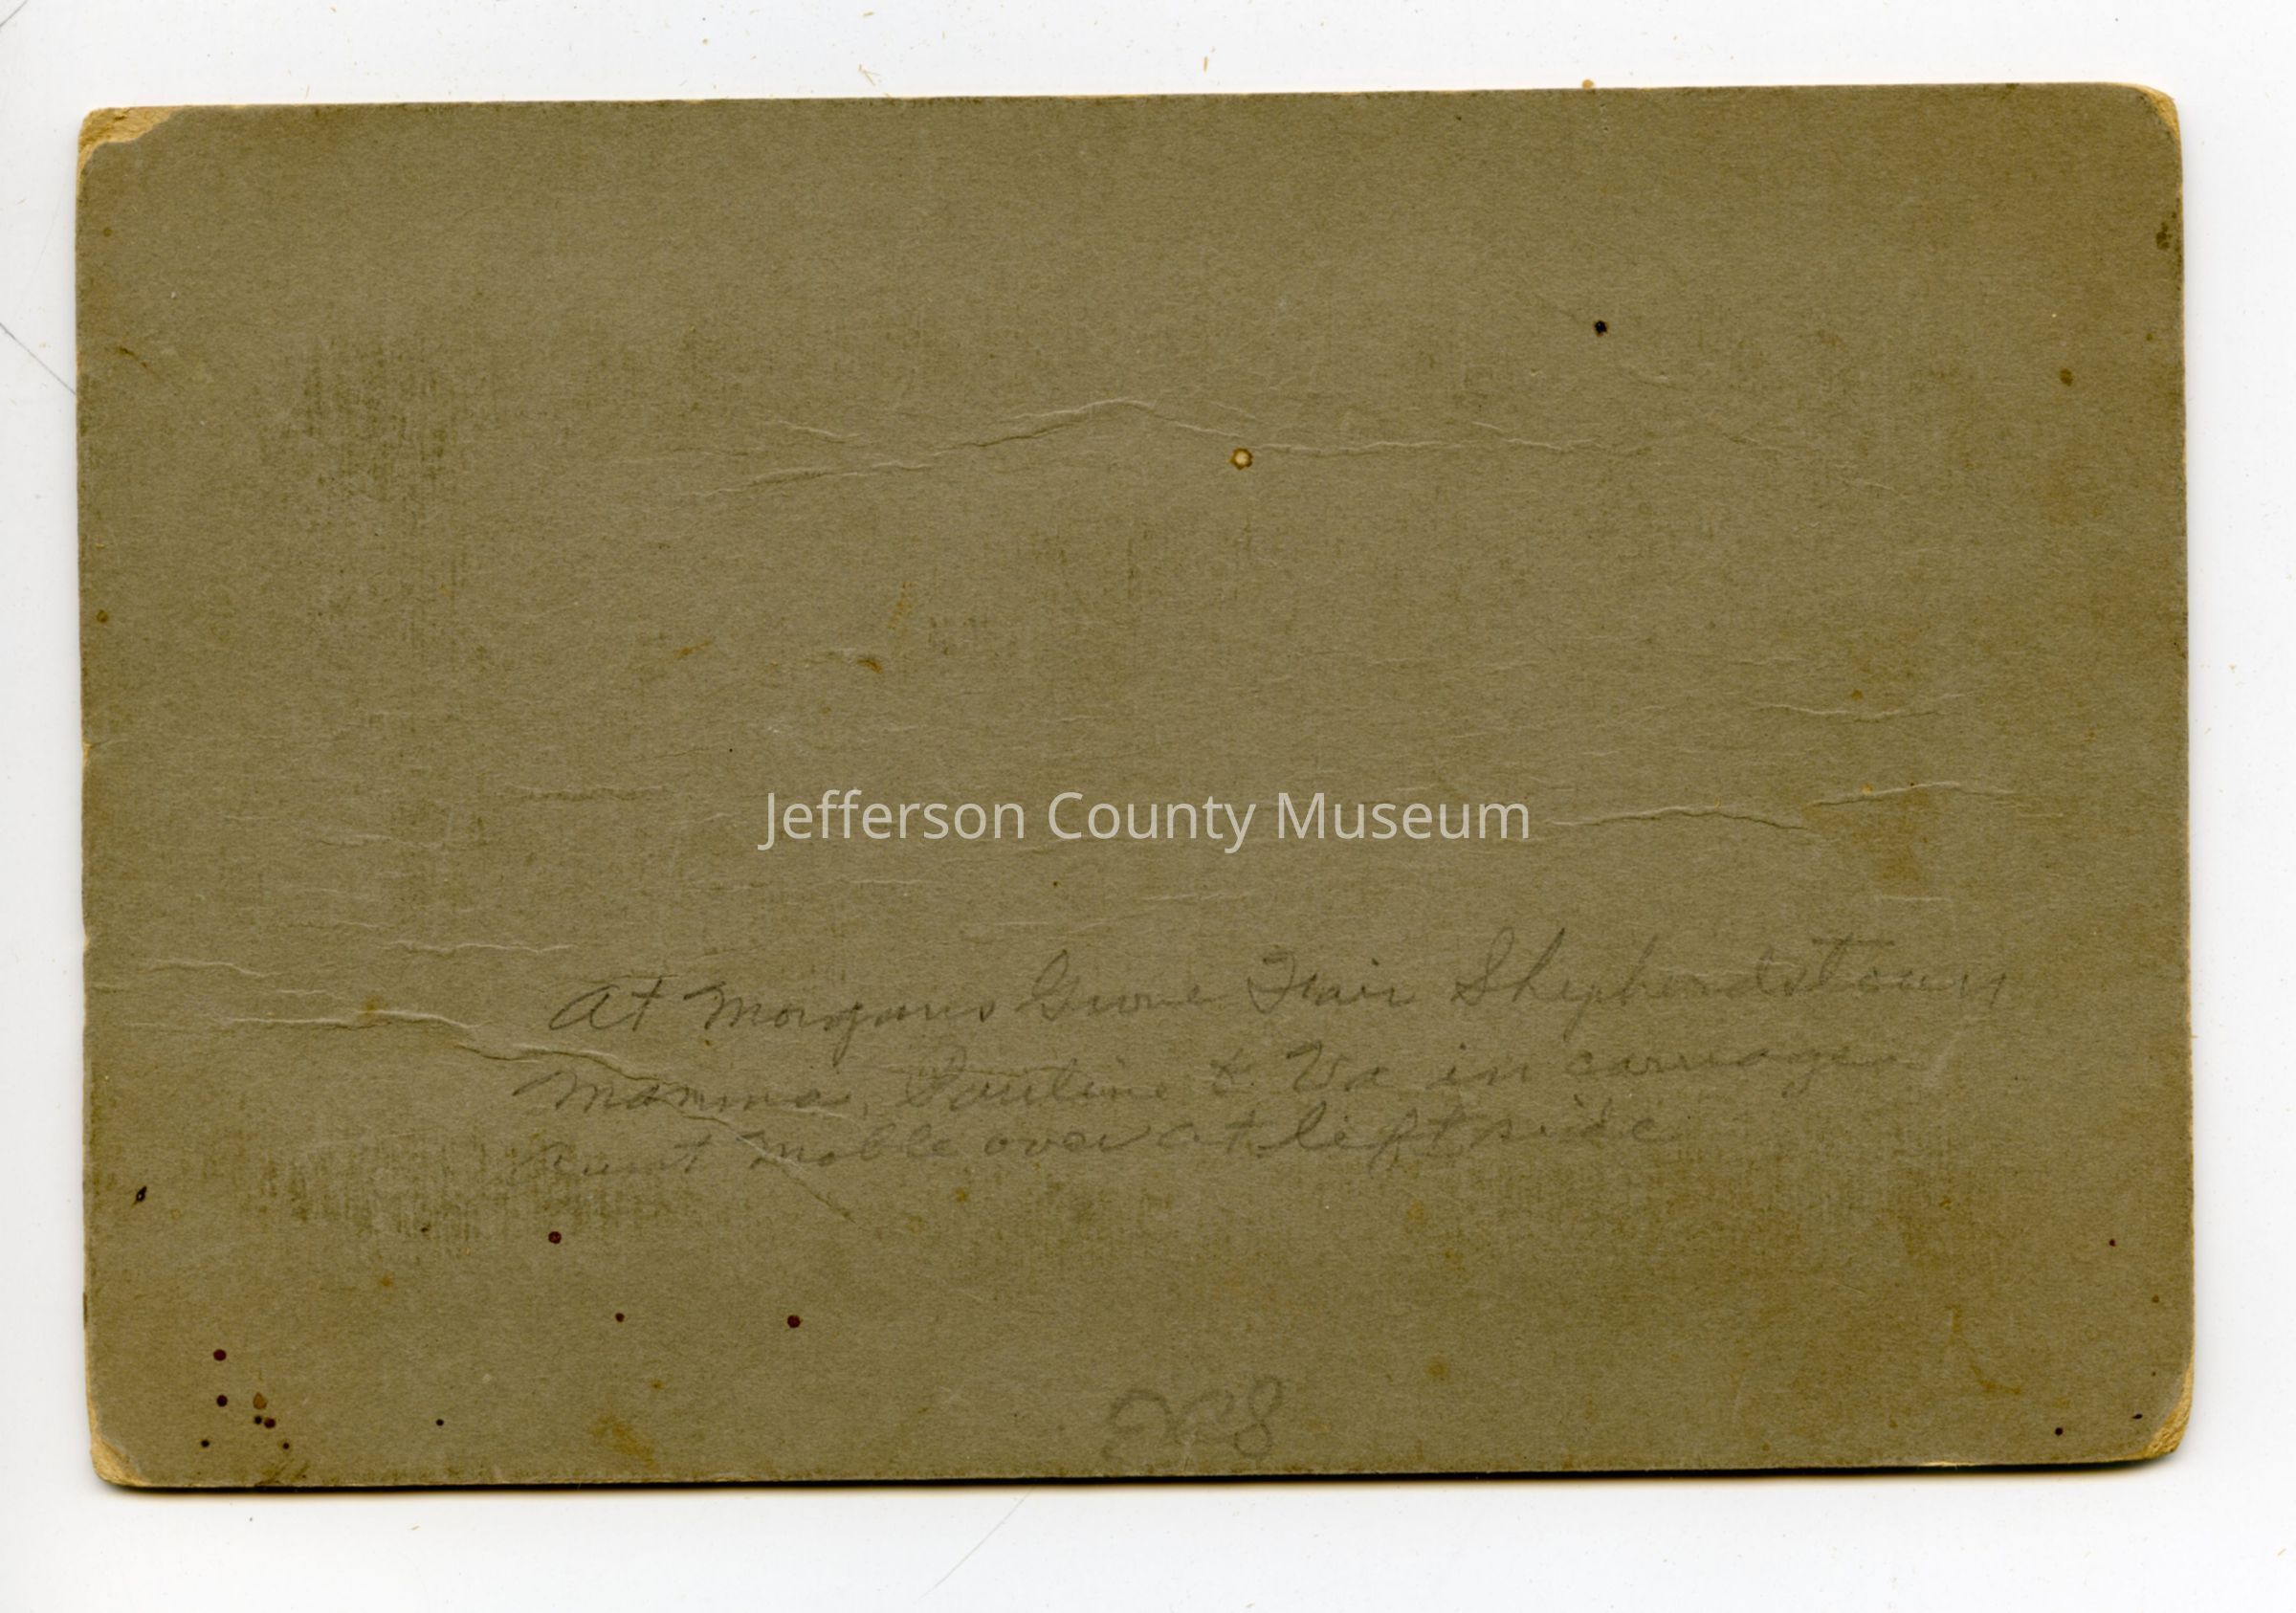 Jefferson County Museum
At Morgans Grove Fair Shepherdstown
Mamma, Pauline & Va in carriage
Aunt Molle over at left side